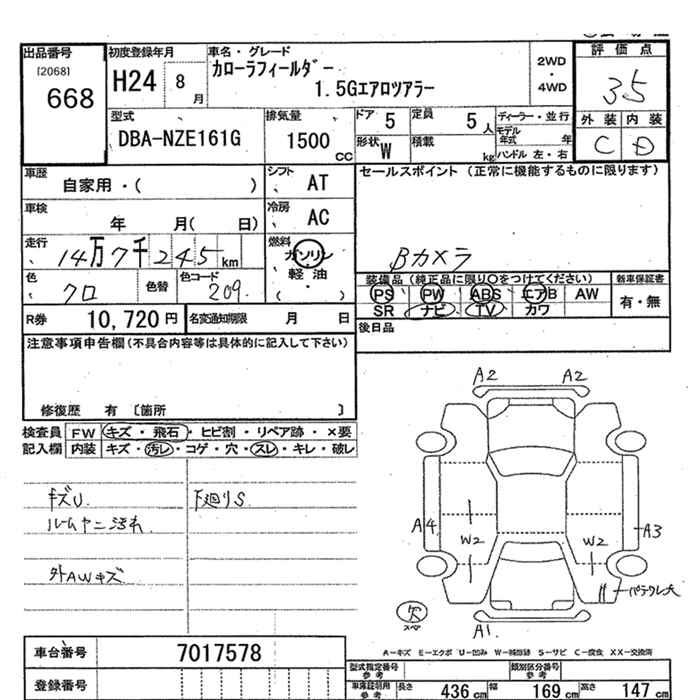 出品番号
[2068]
668
初度登録年月
H24 8月
車名・グレード
カローラフィールダー
1.5Gエアロツアラー
2WD
・
4WD
評価点
35
外装 内装
C D
型式
DBA-NZE161G
排気量
1500 CC
ドア 5
定員 5人
形状 W
積載 kg
ディーラー・並行
モデル年式 年
ハンドル 左・右
車歴
自家用・( )
シフト
AT
車検
年 月( 日)
冷房
AC
走行
14万7千245km
燃料
ガソリン
・
軽油
・
( )
色
クロ
色替
色コード
209
R券 10,720円
名変通知期限 月 日
セールスポイント (正常に機能するものに限ります)
Bカメラ
装備品 (純正品に限り○をつけてください)
PS PW ABS エアB AW
SR ナビ TV カワ
新車保証書
有・無
後日品
注意事項申告欄(不具合内容等は具体的に記入して下さい)
修復歴 有 [箇所 ]
検査員記入欄
FW キズ・飛石・ヒビ割・リペア跡・×要
内装 キズ・汚レ・コゲ・穴・スレ・キレ・破レ
キズU.
下廻りS.
ルームヤニ汚れ
外AWキズ
A2 A2
A4
W2 W2
A3
バラクレ大
欠
スペア
A1.
A-キズ E-エクボ U-凹み W-補修跡 S-サビ C-腐食 XX-交換済
車台番号 7017578
登録番号
型式指定番号
参考
類別区分番号
参考
車庫証明用
参考
長さ 436 cm
幅 169 cm
高さ 147 cm